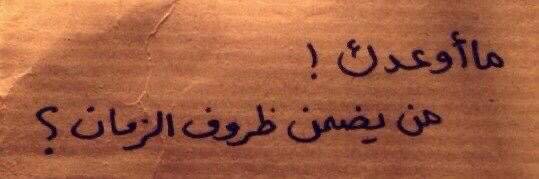 ماأوعدك !
من يضمن ظروف الزمان ؟